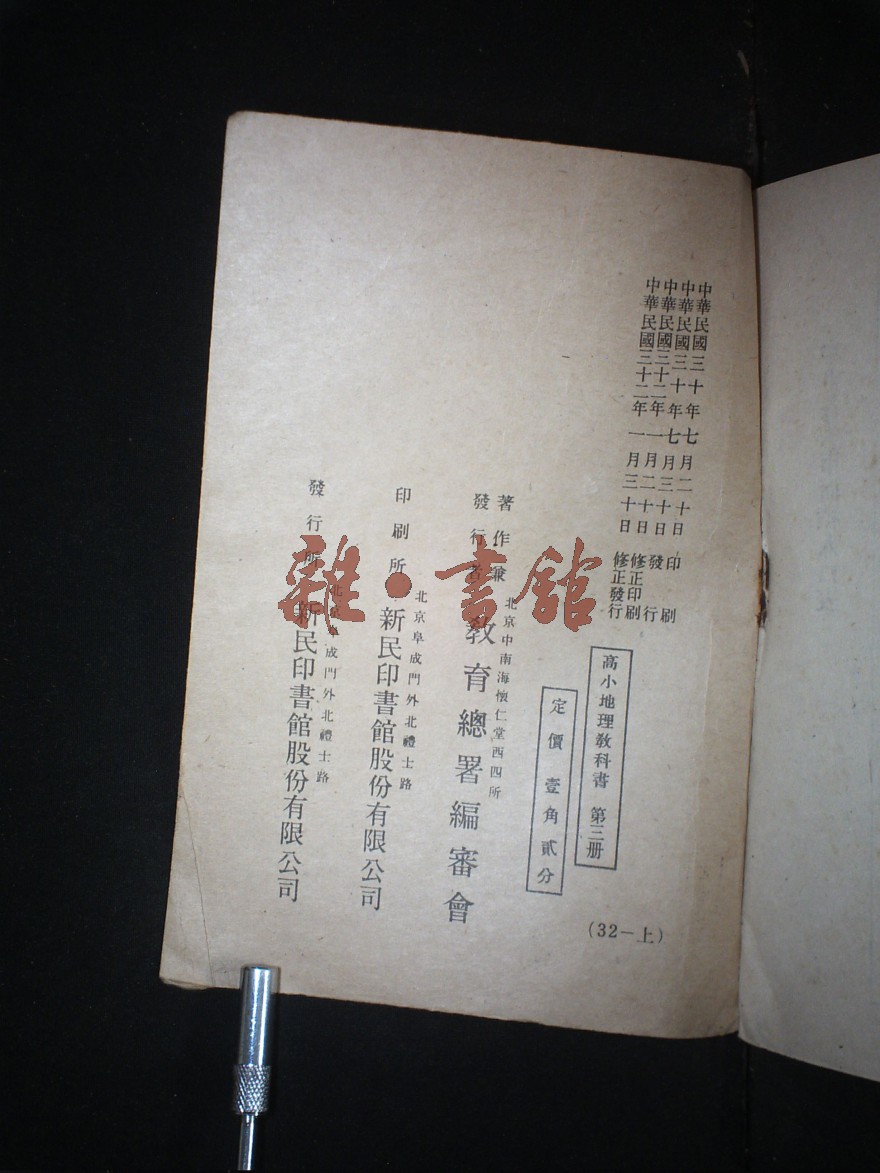 中華民國三十年七月二十日 印刷
中華民國三十年七月三十日 發行
中華民國三十二年一月二十日 修正印刷
中華民國三十二年一月三十日 修正發行
高小地理教科書 第三册
定價壹角貳分
著作兼
發行者
北京中南海懷仁堂西四所
教育總署編審會
印刷所
北京阜成門外北禮士路
新民印書館股份有限公司
發行所
北京阜成門外北禮士路
新民印書館股份有限公司
(32—上)
雜·書館